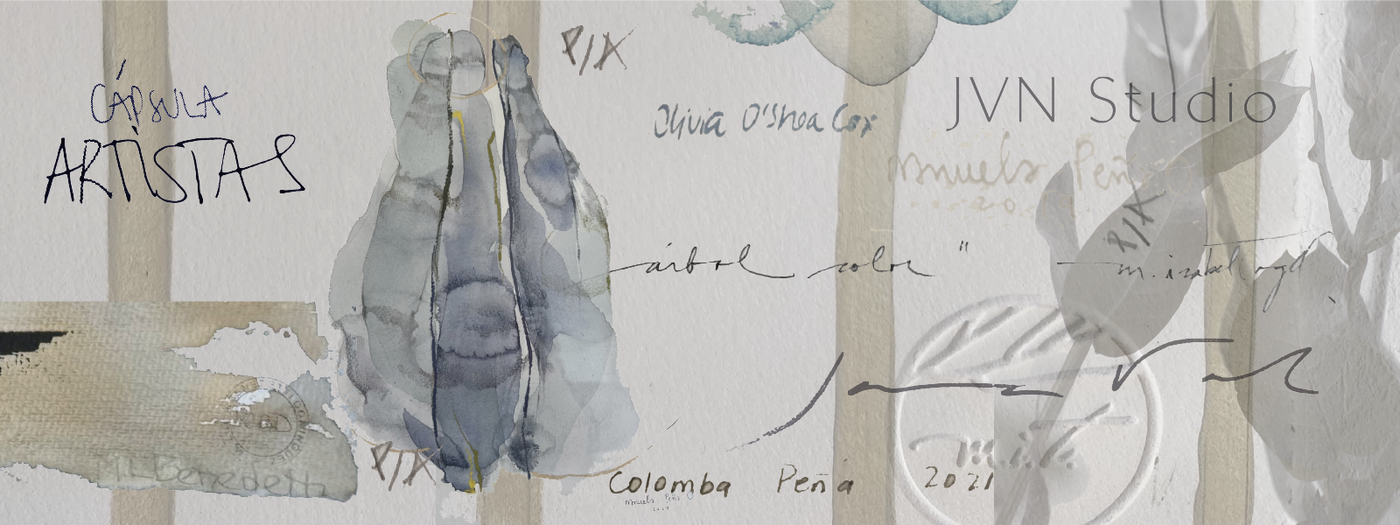 CÁPSULA
ARTISTAS
P/X
Olivia O'Shea Cox
JVN Studio
Manuela Peña
P/X
árbol color "
m. isabel
m.i.t.
P/X
M.L. Benedetti
Colomba Peña 2021
Manuela Peña